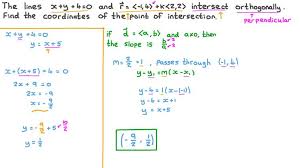 The lines x+y+4=0 and r=<-1,4>+k<2,2> intersect orthogonally.
Find the coordinates of the point of intersection.
perpendicular
x+y+4=0
y=x+5
x+(x+5)+4=0
2x+9=0
2x=-9
x=-9/2
y=-9/2+5
y=1/2
if d=<a,b> and a≠0, then
the slope is b/a
m=2/2=1, passes through (-1,4)
y-y₁=m(x-x₁)
y-4=1(x--1)
y-4=x+1
y=x+5
(-9/2, 1/2)